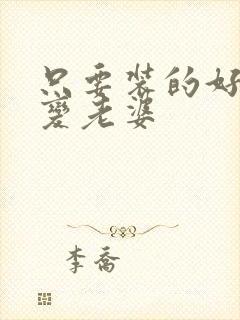 只要装的好
变老婆
李乔